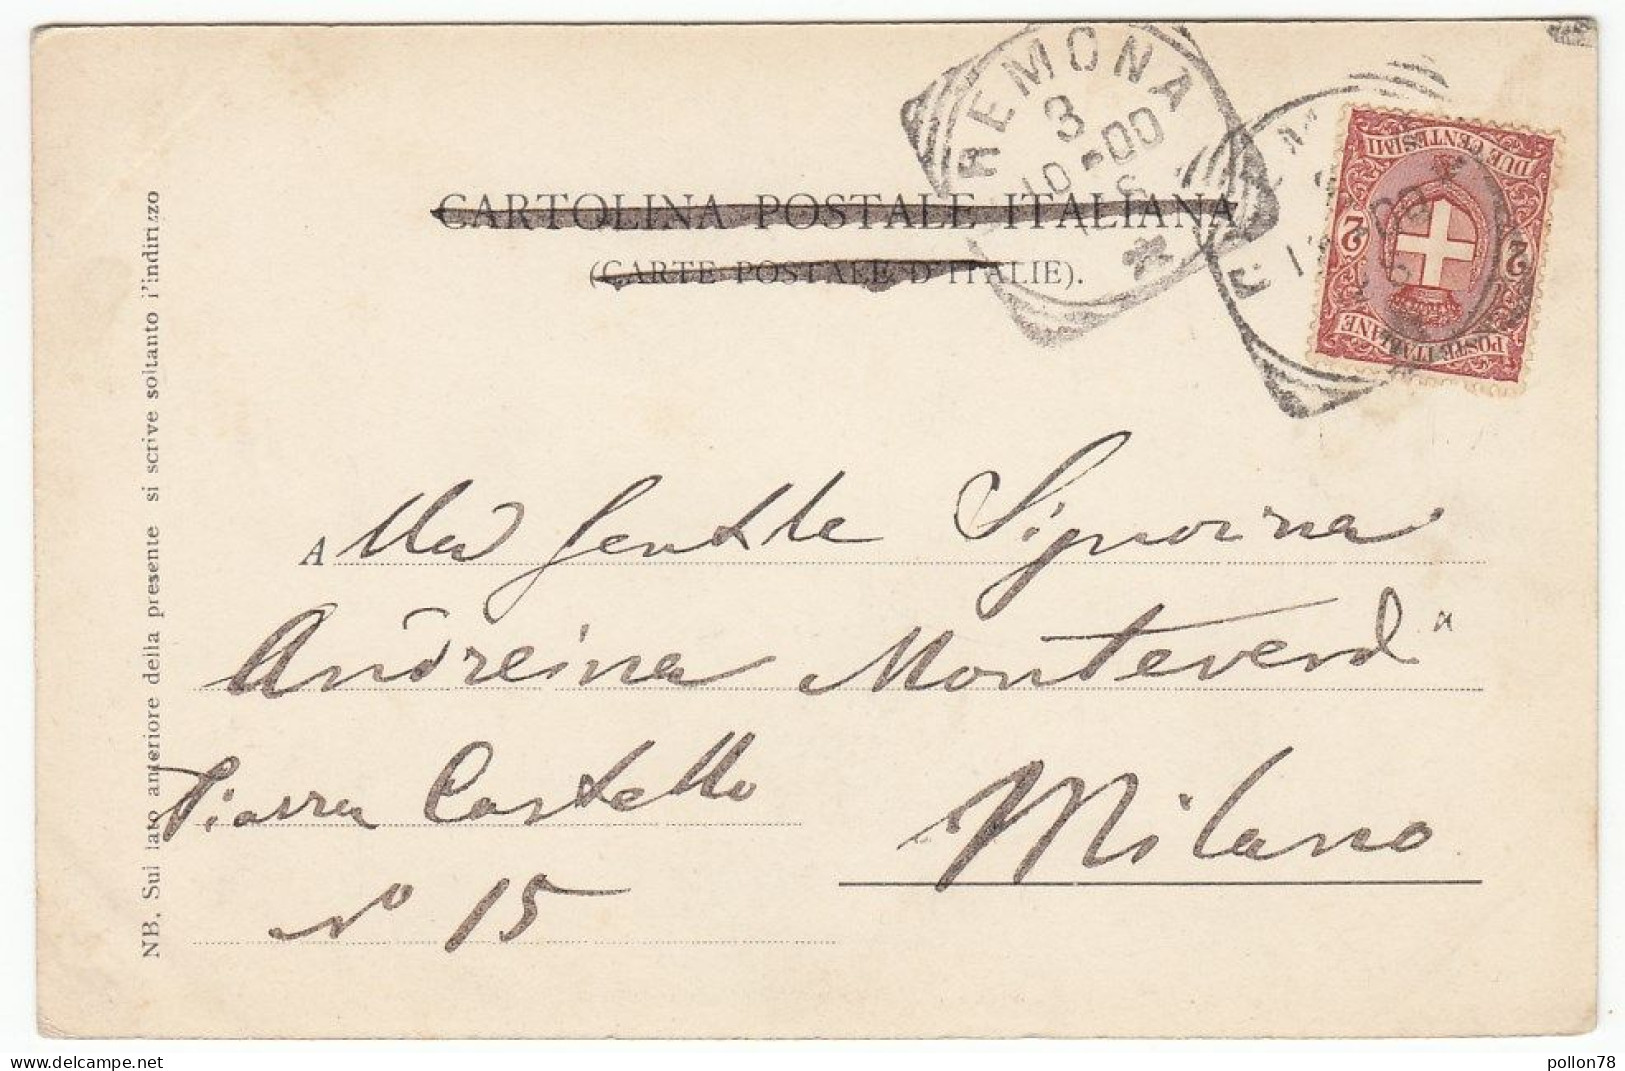 CARTOLINA POSTALE ITALIANA
(CARTE POSTALE D'ITALIE).
REMONA
3
10-00
DUE CENTESIMI
2
2
POSTE ITALIANE
A Alla Gentile Signorina
Andreina Monteverdi
Piazza Castello
Milano
N° 15
NB. Sul lato anteriore della presente si scrive soltanto l'indirizzo
www.delcampe.net
pollon78